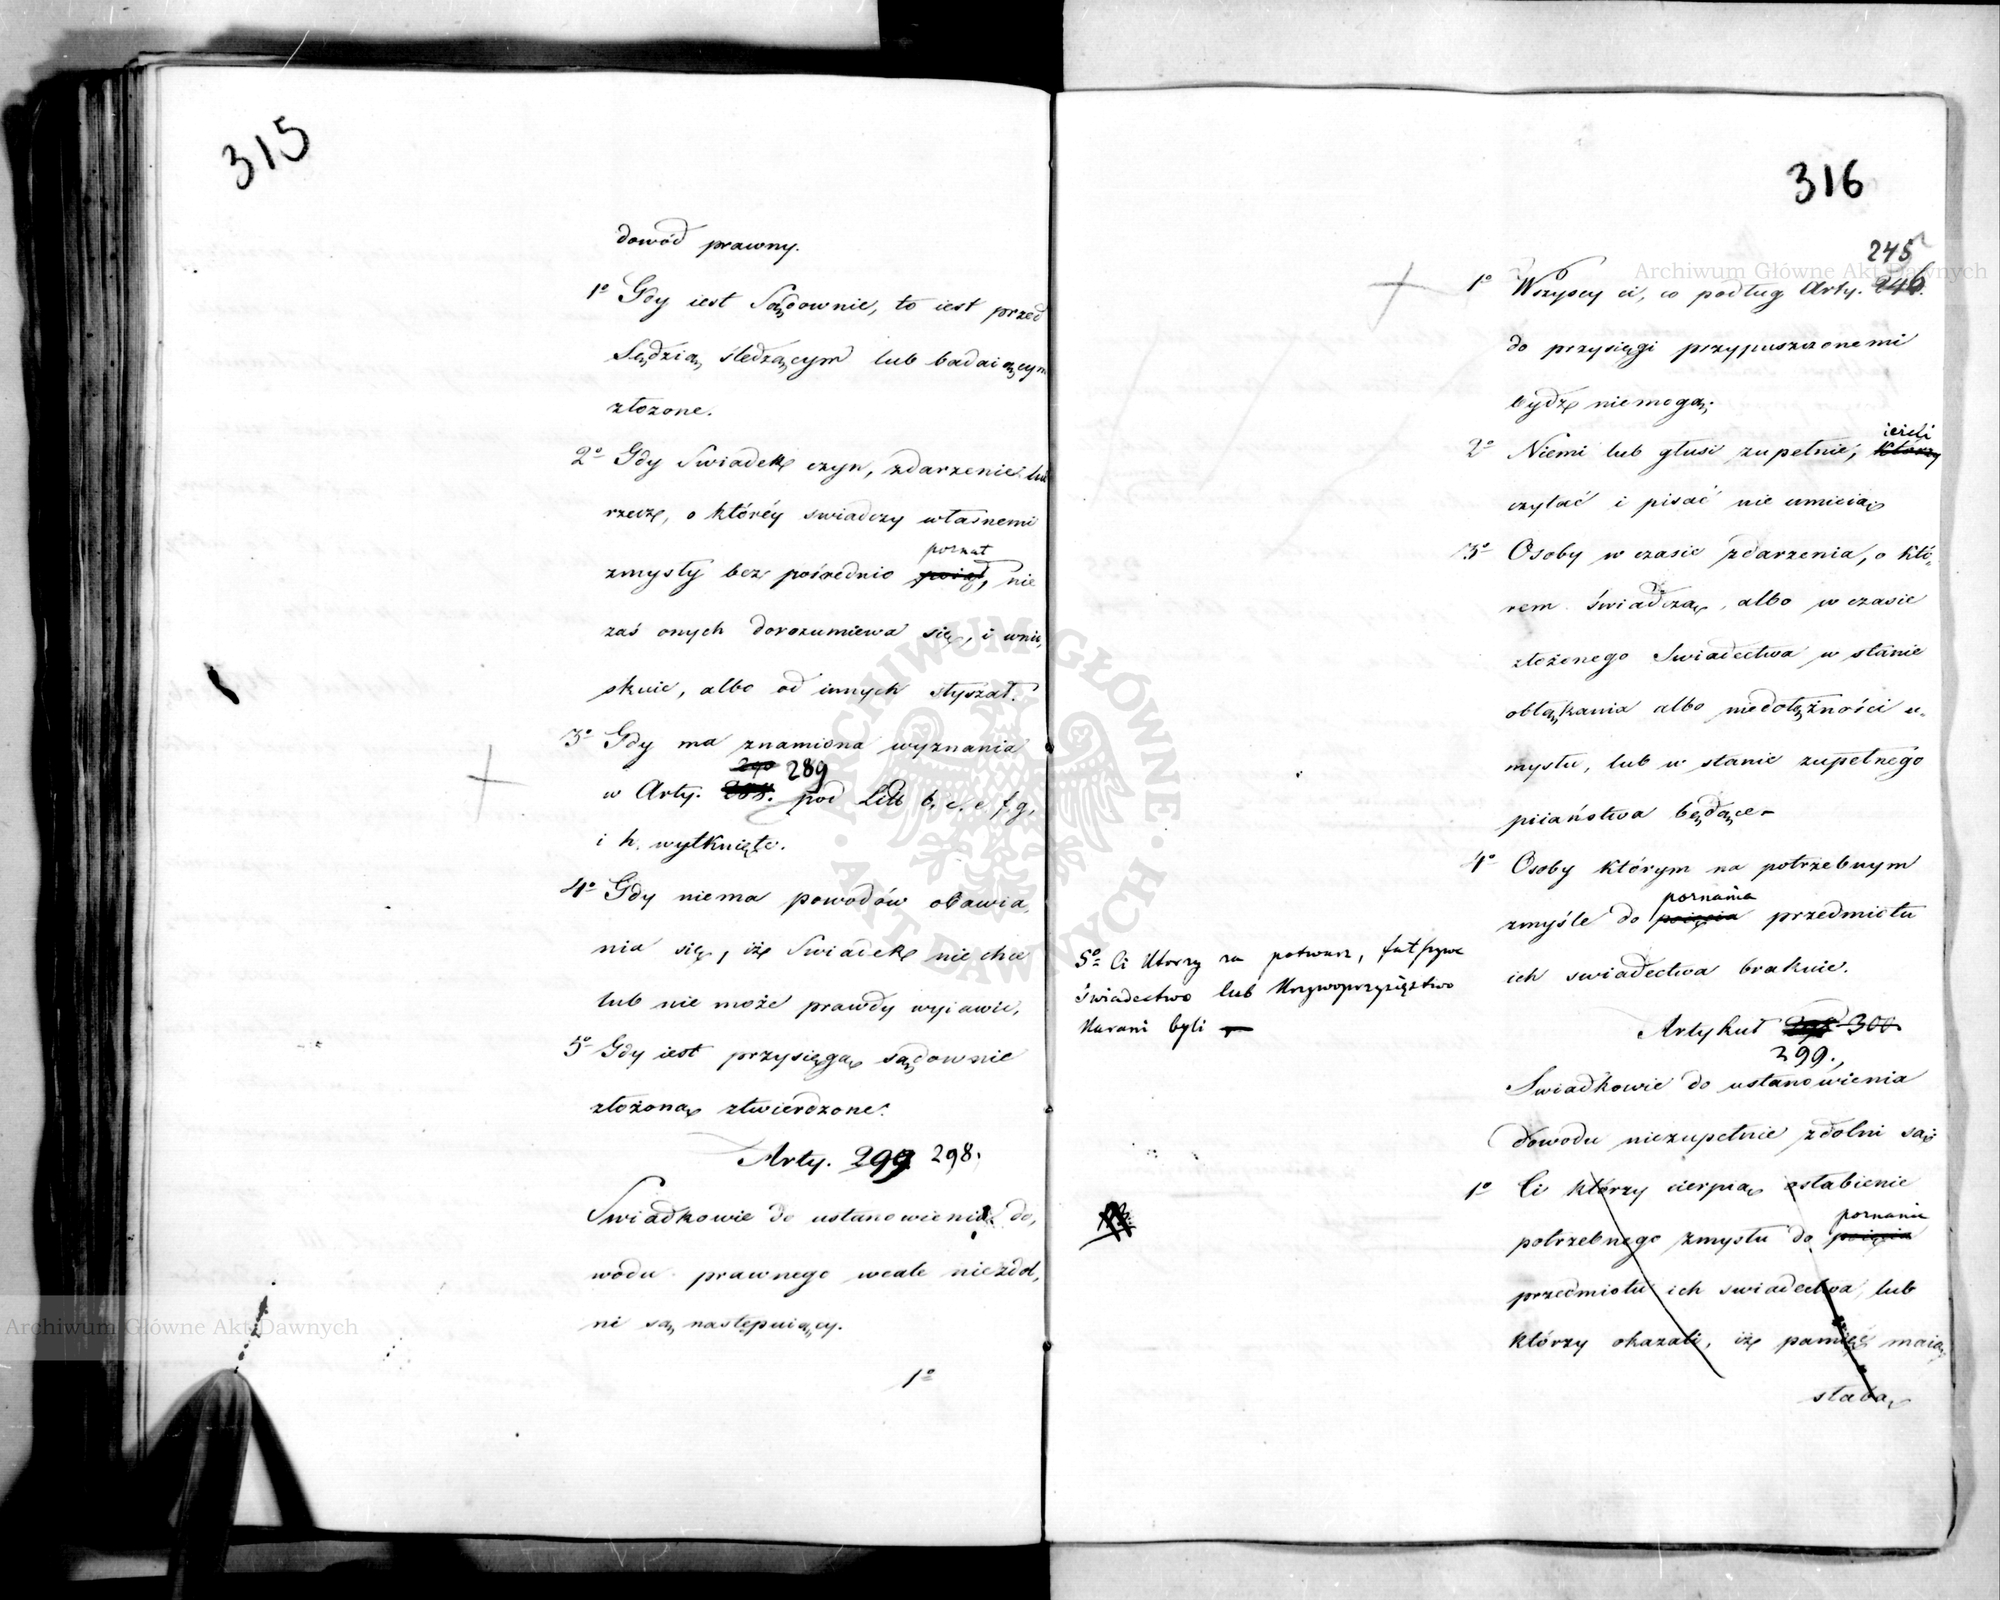 315
dowód prawny.
1º Gdy iest Sądownie, to iest przed
Sędzią śledzącym lub badaiącym
złożone.
2º Gdy Swiadek czyn, zdarzenie lub
rzecz, o któréy swiadczy własnemi
poznał
zmysły bez pośrednio poiął, nie
zaś onych dorozumiewa się, i wnio,
skuie, albo od innych słyszał.
3º Gdy ma znamiona wyznania
290 289
w Arty. 288. pod Litt b, c, e f, g,
i h. wytknięte.
4º Gdy niema powodów obawia,
nia się, iż Swiadek nie chce
lub nie może prawdy wyiawić,
5º Gdy iest przysięgą sądownie
złożoną ztwierdzone.
Arty. 299 298.
Swiadkowie do ustanowienia do,
wodu prawnego wcale niezdol,
ni są następuiący.
1º
316
245
1º Wszyscy ci, co podług Arty. 246.
do przysięgi przypuszczonemi
bydź niemogą;
ieżeli
2º Niemi lub głusi zupełnie, którzy
czytać i pisać nie umieią
3º Osoby w czasie zdarzenia, o któ,
rem świadczą, albo w czasie
złożonego Swiadectwa w stanie
obłąkania albo niedołężności u,
mysłu, lub w stanie zupełnego
piiaństwa będące
4º Osoby którym na potrzebnym
poznania
zmyśle do poięcia przedmiotu
ich swiadectwa brakuie.
5º Ci którzy za potwarz, fałszywe
świadectwo lub krzywoprzysięstwo
karani byli
Artykuł 298 300
299.
Swiadkowie do ustanowienia
dowodu niezupełnie zdolni są:
1º Ci którzy cierpią osłabienie
poznania
potrzebnego zmysłu do poięcia
przedmiotu ich swiadectwa, lub
którzy okazali, iż pamięć maią
słabą,
Archiwum Główne Akt Dawnych
Archiwum Główne Akt Dawnych
ARCHIWUM GŁÓWNE AKT DAWNYCH